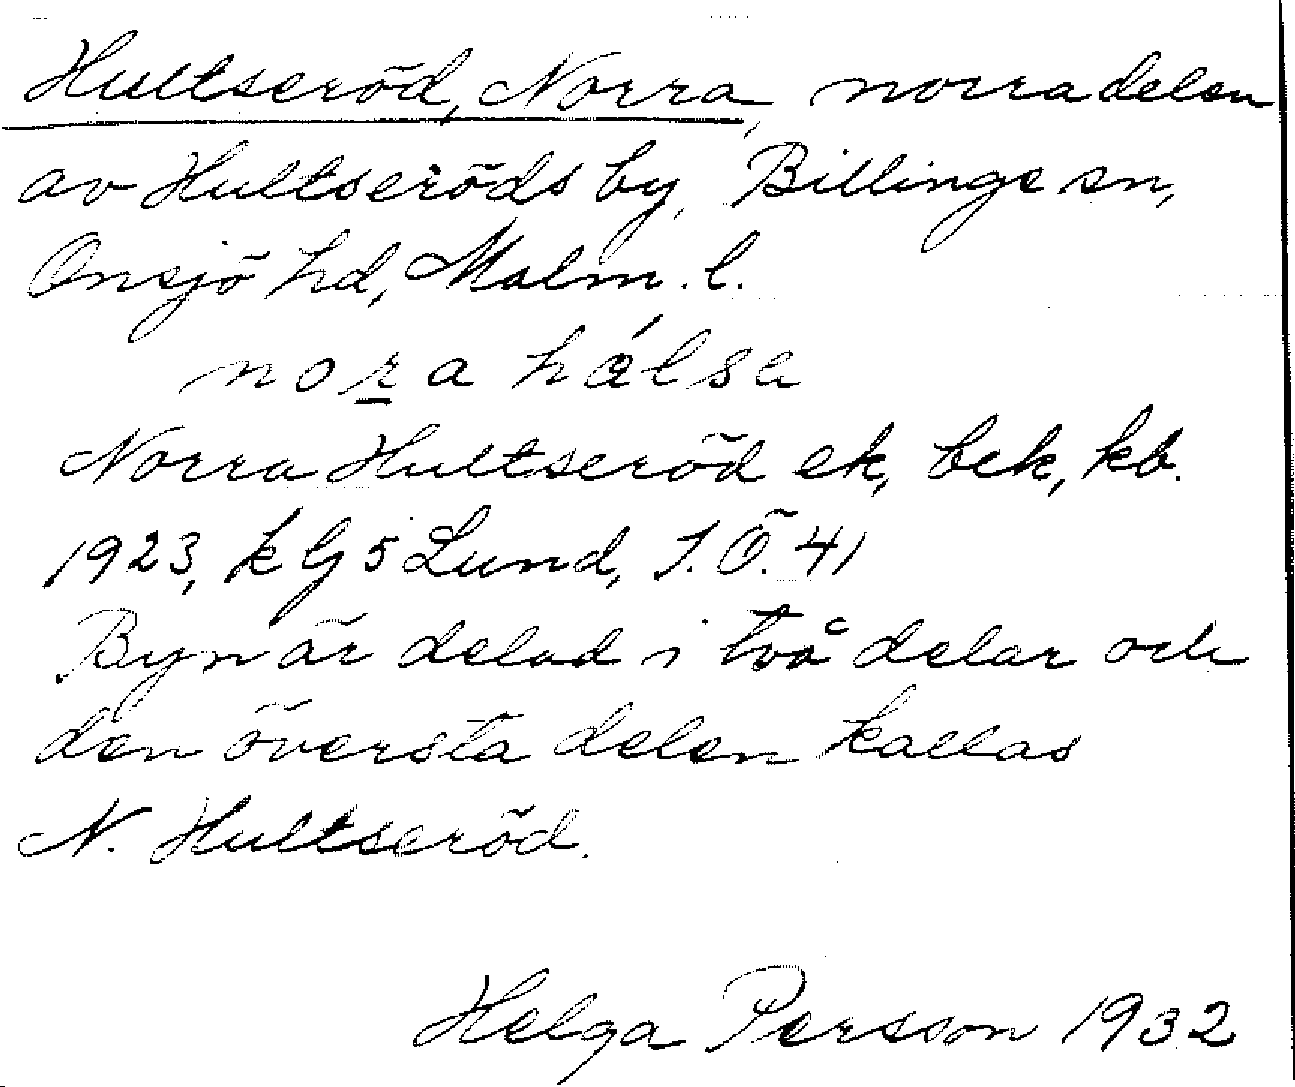 Hultseröd, Norra, norra delen
av Hultseröds by, Billinge sn,
Onsjö hd, Malm. l.
nora hálsa
Norra Hultseröd ek, bek, kb.
1923, k G 5 Lund, S.Ö. 41
Byn är delad i två delar och
den översta delen kallas
N. Hultseröd.
Helga Persson 1932